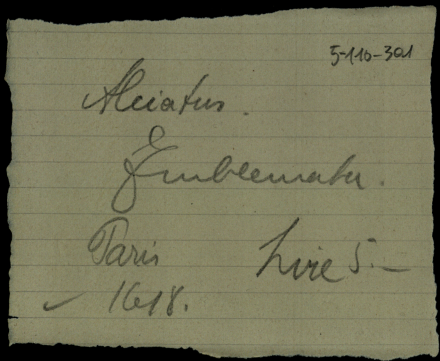 5-116-301
Alciatus.
Emblemata.
Paris Lire 5.—
1618.